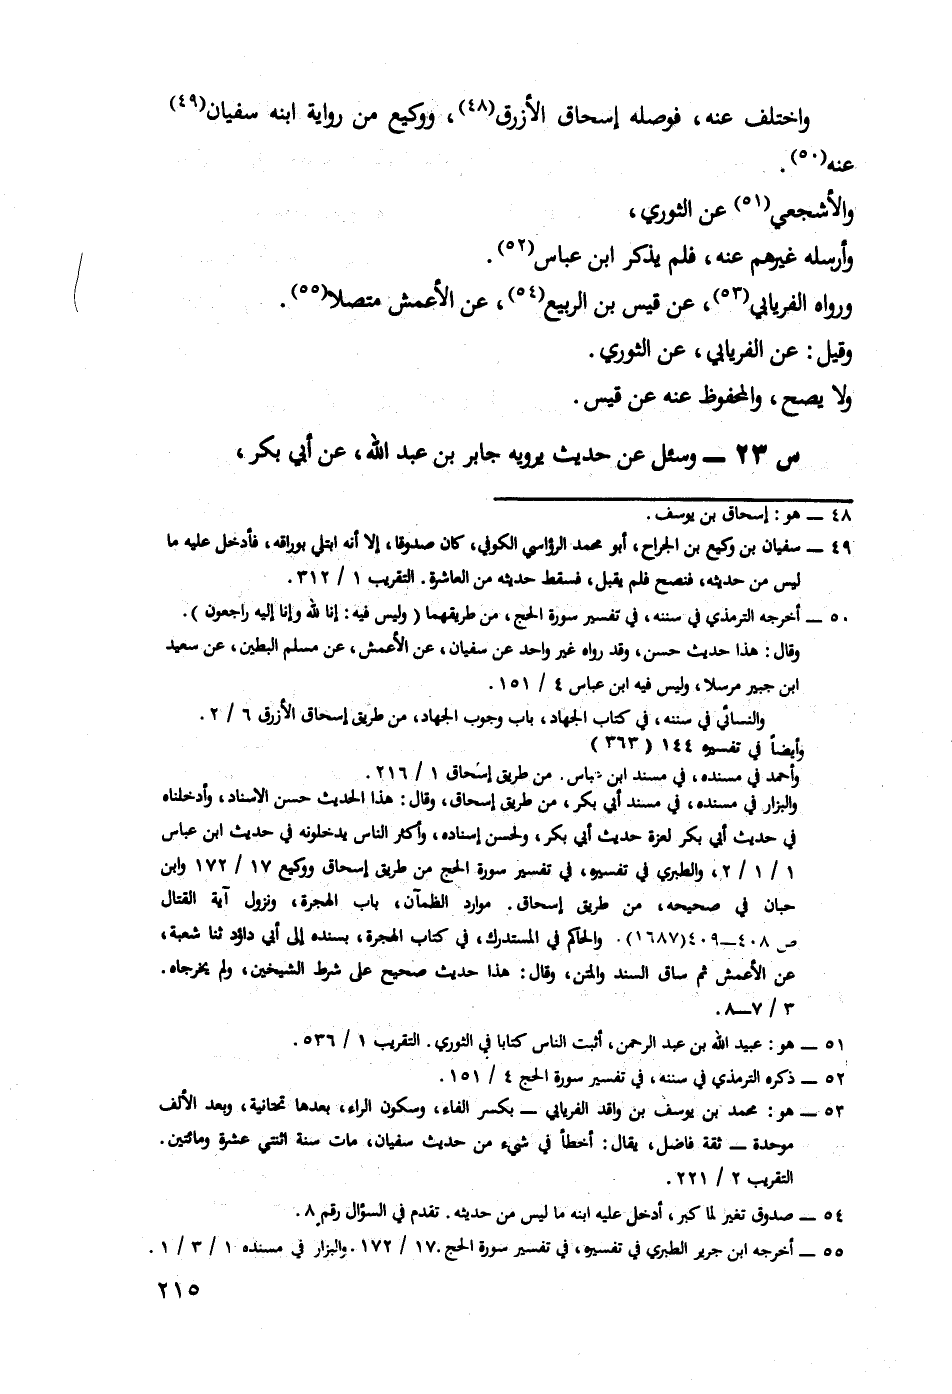 واختلف عنه، فوصله إسحاق الأزرق(٤٨)، ووكيع من رواية ابنه سفيان(٤٩)
عنه(٥٠).
والأشجعي(٥١) عن الثوري،
وأرسله غيرهم عنه، فلم يذكر ابن عباس(٥٢).
ورواه الفريابي(٥٣)، عن قيس بن الربيع(٥٤)، عن الأعمش متصلا(٥٥).
وقيل: عن الفريابي، عن الثوري.
ولا يصح، والمحفوظ عنه عن قيس.
س ٢٣ — وسئل عن حديث يرويه جابر بن عبد الله، عن أبي بكر،
٤٨ — هو: إسحاق بن يوسف.
٤٩ — سفيان بن وكيع بن الجراح، أبو محمد الرؤاسي الكوفي، كان صدوقا، إلا أنه ابتلي بوراقه، فأدخل عليه ما
ليس من حديثه، فنصح فلم يقبل، فسقط حديثه من العاشرة. التقريب ١ / ٣١٢.
٥٠ — أخرجه الترمذي في سننه، في تفسير سورة الحج، من طريقهما (وليس فيه: إنا لله وإنا إليه راجعون).
وقال: هذا حديث حسن، وقد رواه غير واحد عن سفيان، عن الأعمش، عن مسلم البطين، عن سعيد
ابن جبير مرسلا، وليس فيه ابن عباس ٤ / ١٥١.
والنسائي في سننه، في كتاب الجهاد، باب وجوب الجهاد، من طريق إسحاق الأزرق ٦ / ٢.
وأيضاً في تفسيره ١٤٤ (٣٦٣)
وأحمد في مسنده، في مسند ابن عباس. من طريق إسحاق ١ / ٢١٦.
والبزار في مسنده، في مسند أبي بكر، من طريق إسحاق، وقال: هذا الحديث حسن الاسناد، وأدخلناه
في حديث أبي بكر لعزة حديث أبي بكر، ولحسن إسناده، وأكثر الناس يدخلونه في حديث ابن عباس
١ / ١ / ٢، والطبري في تفسيره، في تفسير سورة الحج من طريق إسحاق ووكيع ١٧ / ١٧٢ وابن
حبان في صحيحه، من طريق إسحاق. موارد الظمآن، باب الهجرة، ونزول آية القتال
ص ٤٠٨—٤٠٩(١٦٨٧). والحاكم في المستدرك، في كتاب الهجرة، بسنده إلى أبي داؤد ثنا شعبة،
عن الأعمش ثم ساق السند والمتن، وقال: هذا حديث صحيح على شرط الشيخين، ولم يخرجاه.
٣ / ٧—٨.
٥١ — هو: عبيد الله بن عبد الرحمن، أثبت الناس كتابا في الثوري. التقريب ١ / ٥٣٦.
٥٢ — ذكره الترمذي في سننه، في تفسير سورة الحج ٤ / ١٥١.
٥٣ — هو: محمد بن يوسف بن واقد الفريابي — بكسر الفاء، وسكون الراء، بعدها تحتانية، وبعد الألف
موحدة — ثقة فاضل، يقال: أخطأ في شيء من حديث سفيان، مات سنة اثنتي عشرة ومائتين.
التقريب ٢ / ٢٢١.
٥٤ — صدوق تغير لما كبر، أدخل عليه ابنه ما ليس من حديثه. تقدم في السؤال رقم ٨.
٥٥ — أخرجه ابن جرير الطبري في تفسيره، في تفسير سورة الحج. ١٧ / ١٧٢. والبزار في مسنده ١ / ٣ / ١.
٢١٥